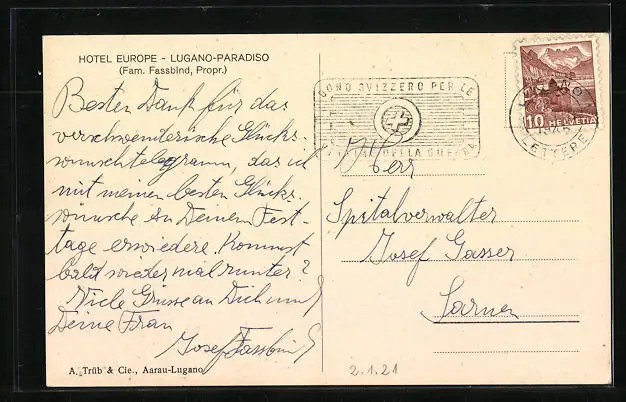 HOTEL EUROPE - LUGANO-PARADISO
(Fam. Fassbind, Propr.)
Besten Dank für das
verschwenderische Glücks-
wunschtelegramm, das ich
mit meinen besten Glücks-
wünsche zu Deinem Fest-
tage erwiedere. Kommst
bald wieder mal runter?
Viele Grüsse an Dich und
Deine Frau
Josef Fassbind
A. Trüb & Cie., Aarau-Lugano
DONO SVIZZERO PER LE
VITTIME DELLA GUERRA
LUGANO
LETTERE
10 HELVETIA
Herr
Spitalverwalter
Josef Gasser
Sarnen
2.1.21